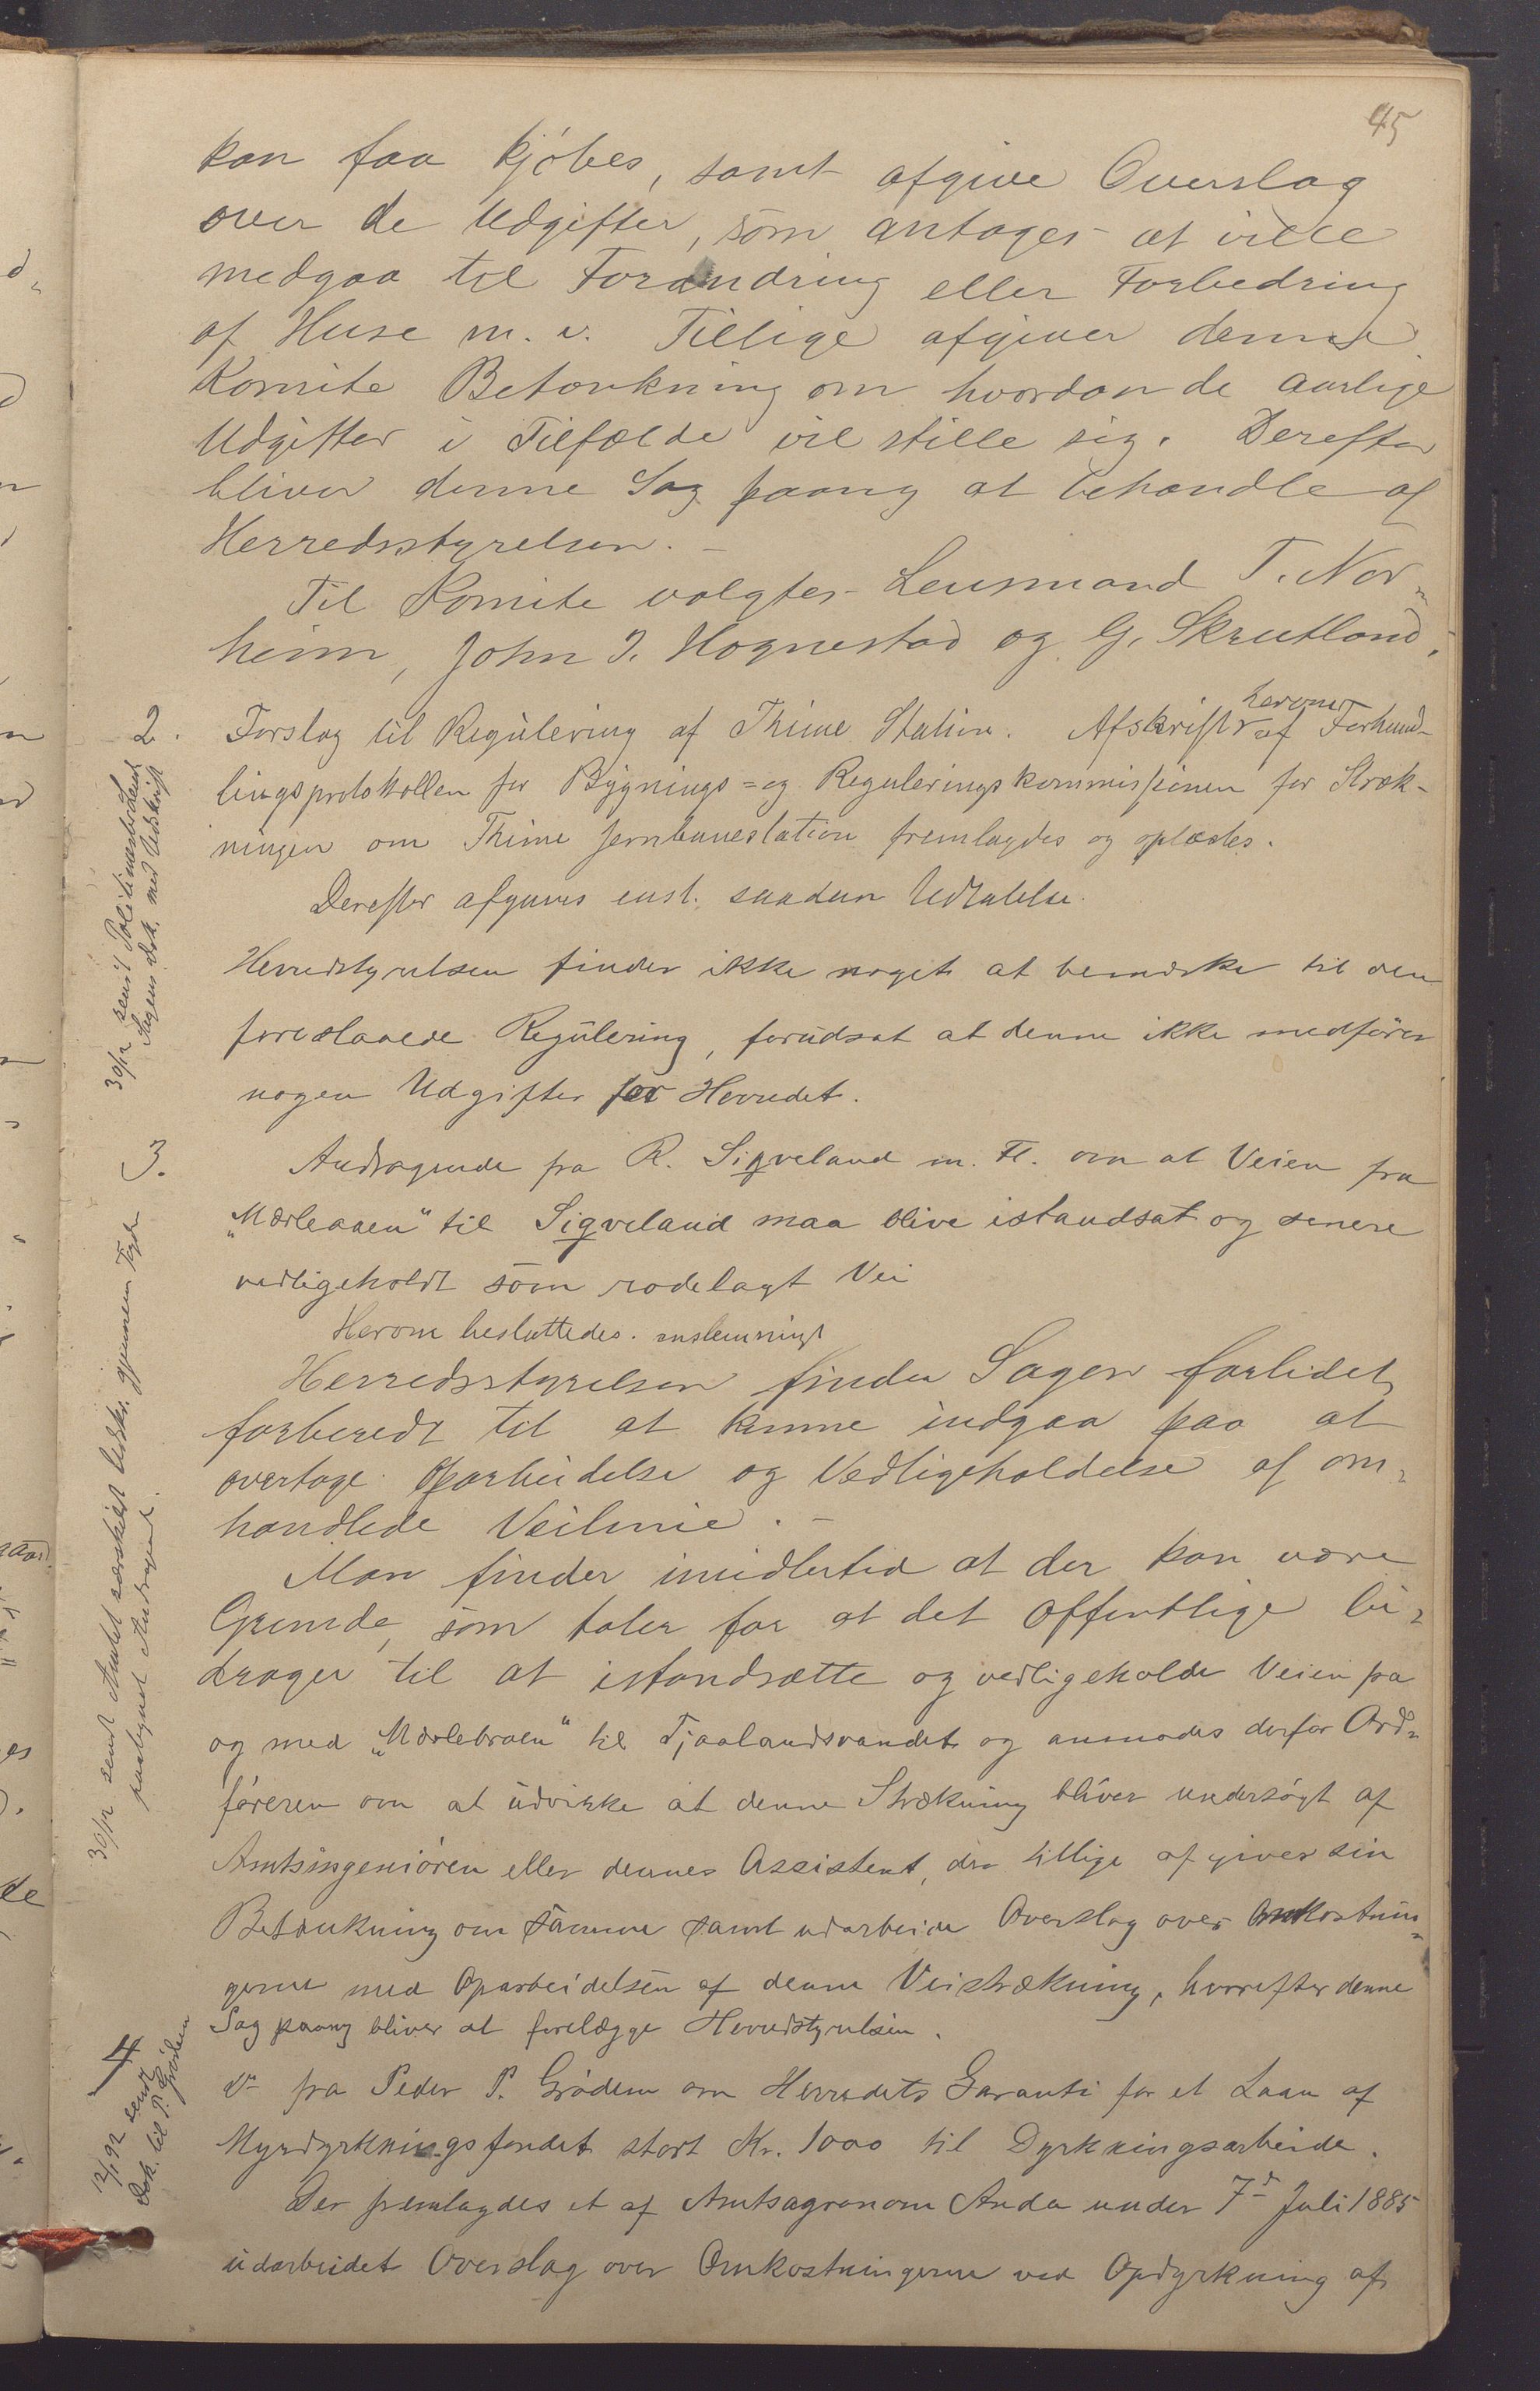 45
kan faa kjöbes, samt afgive Overslag
over de Udgifter, som antages at ville
medgaa til Forandring eller Forbedring
af Huse m. v. Tillige afgiver denne
Komite Betænkning om hvordan de aarlige
Udgifter i Tilfælde vil stille sig. Derefter
bliver denne Sag paany at behandle af
Herredsstyrelsen. –
Til Komite valgtes Lensmand T. Nor-
heim, John J. Hognestad og G. Skrutland.
2. Forslag til Regulering af Thime Station. Afskrift herover af Forhand-
lingsprotokollen for Bygnings- og Reguleringskommissionen for Stræk-
ningen om Thime Jernbanestation fremlagdes og oplæstes.
Derefter afgaves enst. saadan Udtalelse.
Herredstyrelsen finder ikke noget at bemærke til den
foreslaaede Regulering, forudsat at denne ikke medförer
nogen Udgifter for Herredet.
30/12 sendt Politimesteren
Sagens Dok. med Udskrift
3. Andragende fra R. Sigveland m. Fl. om at Veien fra
„Mærleaaen“ til Sigveland maa blive istandsat og senere
vedligeholdt som rodelagt Vei
Herom besluttedes enstemmigt
Herredsstyrelsen finder Sagen forlidet
forberedt til at kunne indgaa paa at
overtage Oparbeidelse og Vedligeholdelse af om-
handlede Veilinie. –
Man finder imidlertid at der kan være
Grunde, som taler for at det offentlige bi-
drager til at istandsætte og vedligeholde Veien fra
og med „Mærlebroen“ til Tjaalandsvandet og anmodes derfor Ord-
föreren om at udvirke at denne Strækning bliver undersögt af
Amtsingeniören eller dennes Assistent, der tillige afgiver sin
Betænkning om samme samt udarbeider Overslag over Omkostnin-
gerne med Oparbeidelsen af denne Veistrækning, hvorefter denne
Sag paany bliver at forelægge Herredstyrelsen.
30/12 sendt Amtet særskilt Udskr. gjennem Fogden
paategnet Andragende.
4 do fra Peder P. Grödem om Herredets Garanti for et Laan af
Myrdyrkningsfondet stort Kr. 1000 til Dyrkningsarbeide.
Der fremlagdes et af Amtsagronom Anda under 7d Juli 1885
udarbeidet Overslag over Omkostningerne ved Opdyrkning af
12/1 92 sendt
Dok. til P. Grödem